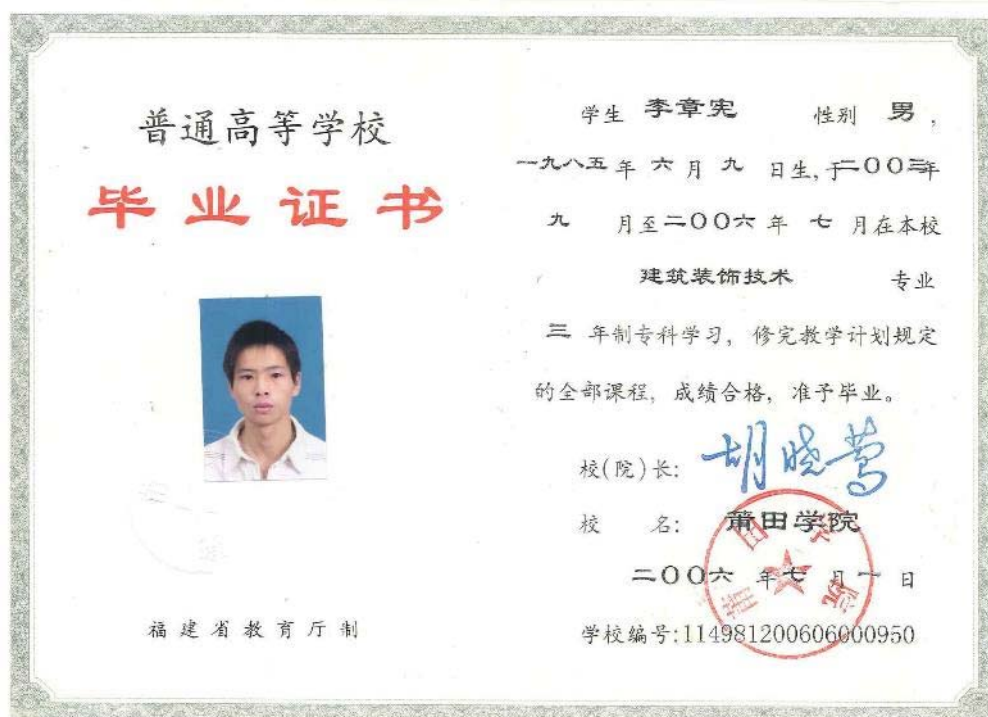 普通高等学校
毕业证书
福建省教育厅制
学生 李章宪 性别 男，
一九八五年 六 月 九 日生，于二〇〇三年
九 月至二〇〇六 年 七 月在本校
建筑装饰技术 专业
三 年制专科学习，修完教学计划规定
的全部课程，成绩合格，准予毕业。
校(院)长：胡晓莺
校 名：莆田学院
二〇〇六 年七 月一 日
学校编号:114981200606000950
莆田学院